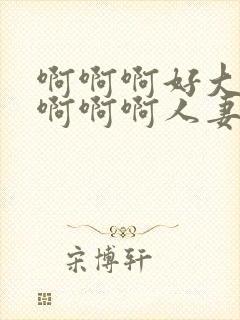 啊啊啊好大
啊啊啊人妻
宋博轩